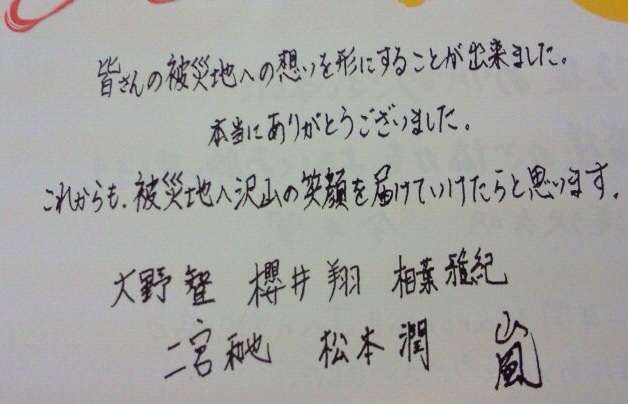 皆さんの被災地への想いを形にすることが出来ました。
本当にありがとうございました。
これからも、被災地へ沢山の笑顔を届けていけたらと思います。
大野智 櫻井翔 相葉雅紀
二宮和也 松本潤 嵐